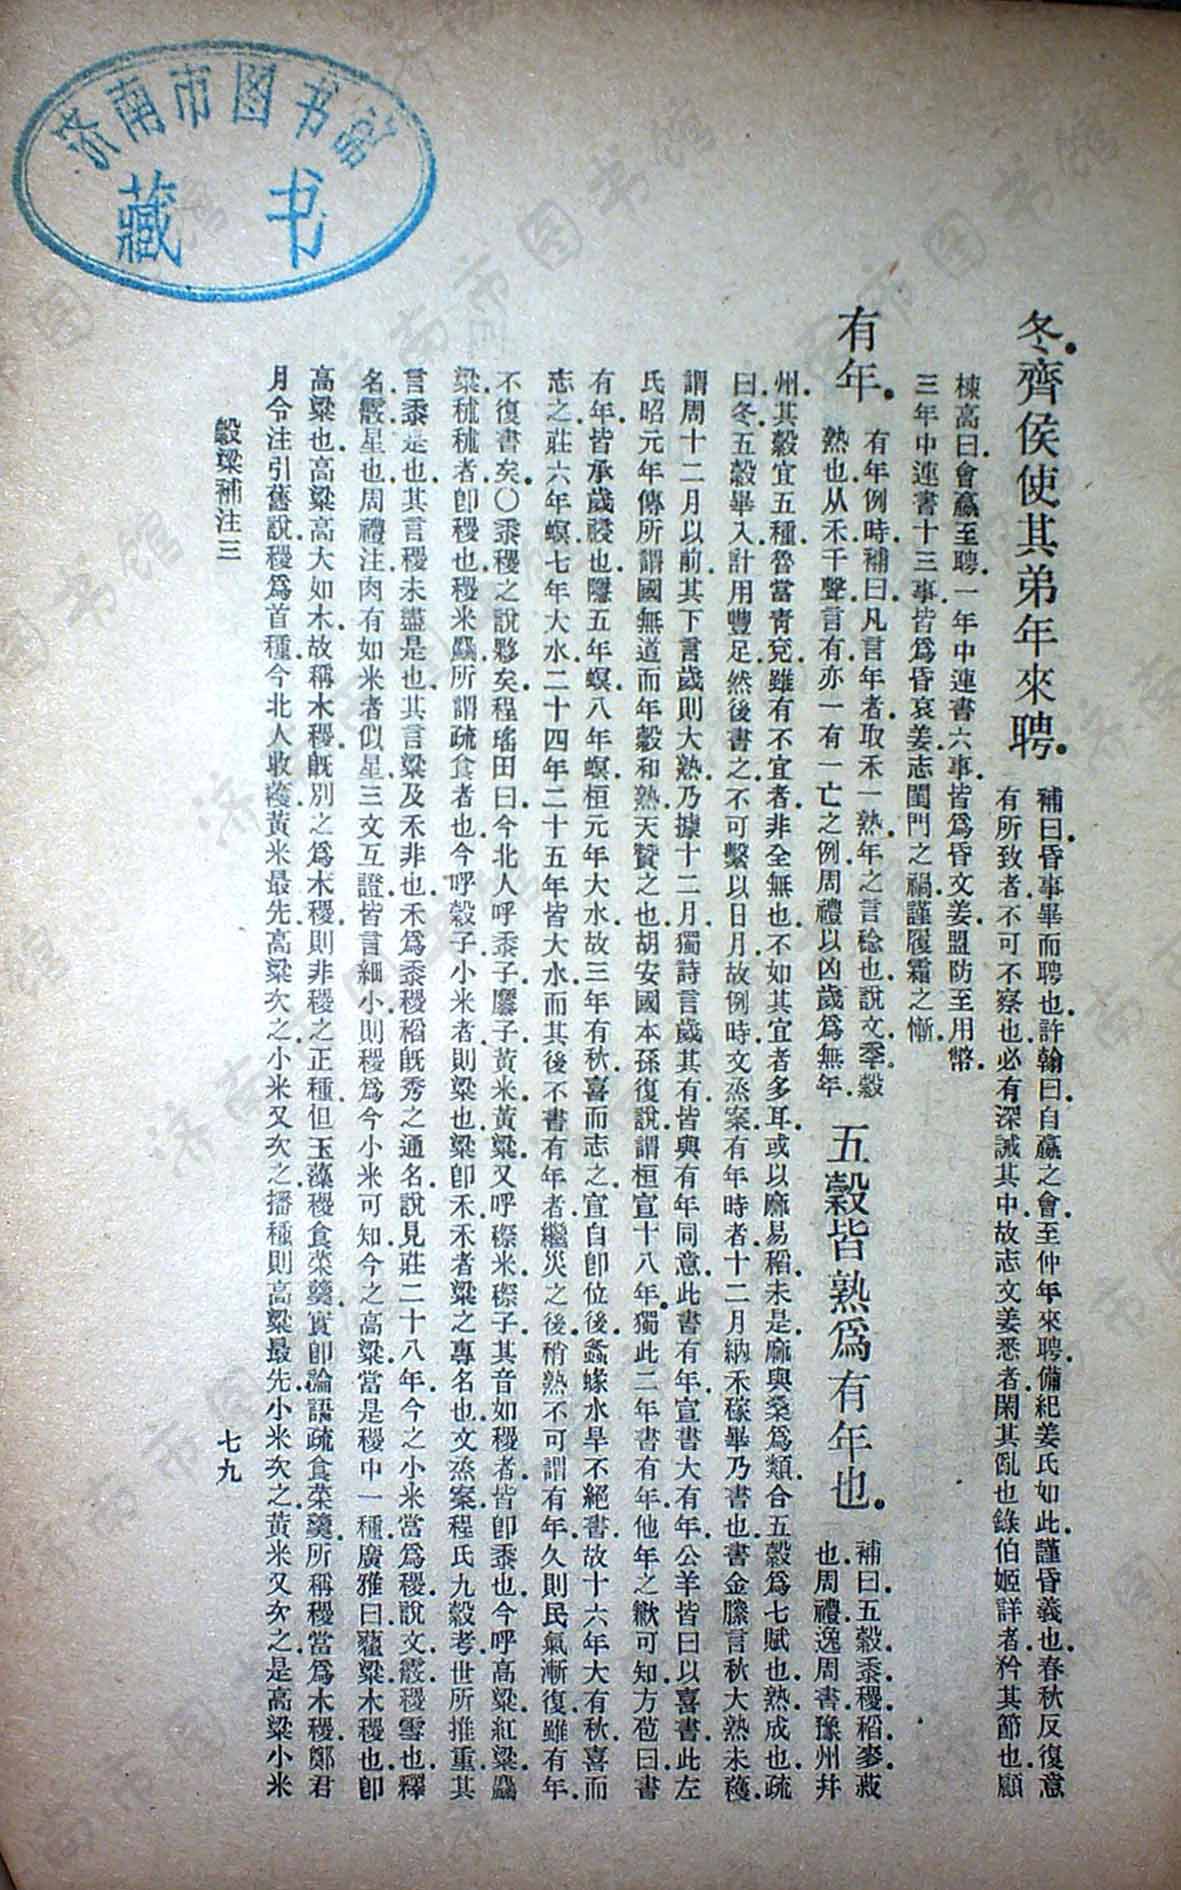 济南市图书馆
藏书
冬齊侯使其弟年來聘
補曰昏事畢而聘也許翰曰自嬴之會至仲年來聘備紀姜氏如此謹昏義也春秋反復意
有所致者不可不察也必有深誡其中故志文姜悉者閑其亂也錄伯姬詳者矜其節也顧
棟高曰會嬴至聘一年中連書六事皆爲昏文姜盟防至用幣
三年中連書十三事皆爲昏哀姜志閨門之禍謹履霜之慚
有年
有年例時補曰凡言年者取禾一熟年之言稔也說文秊穀
熟也从禾千聲言有亦一有一亡之例周禮以凶歲爲無年
五穀皆熟爲有年也
補曰五穀黍稷稻麥菽
也周禮逸周書豫州幷
州其穀宜五種魯當靑兗雖有不宜者非全無也不如其宜者多耳或以麻易稻未是麻與桑爲類合五穀爲七賦也熟成也疏
曰冬五穀畢入計用豐足然後書之不可繫以日月故例時文烝案有年時者十二月納禾稼畢乃書也書金縢言秋大熟未穫
謂周十二月以前其下言歲則大熟乃據十二月獨詩言歲其有皆與有年同意此書有年宣書大有年公羊皆曰以喜書此左
氏昭元年傳所謂國無道而年穀和熟天贊之也胡安國本孫復說謂桓宣十八年獨此二年書有年他年之歉可知方苞曰書
有年皆承歲祲也隱五年螟八年螟桓元年大水故三年有秋喜而志之宣自卽位後螽蝝水旱不絕書故十六年大有秋喜而
志之莊六年螟七年大水二十四年二十五年皆大水而其後不書有年者繼災之後稍熟不可謂有年久則民氣漸復雖有年
不復書矣〇黍稷之說夥矣程瑤田曰今北人呼黍子穈子黃米黃粱又呼穄米穄子其音如稷者皆卽黍也今呼高粱紅粱麤
粱秫秫者卽稷也稷米麤所謂疏食者也今呼穀子小米者則粱也粱卽禾禾者粱之專名也文烝案程氏九穀考世所推重其
言黍是也其言稷未盡是也其言粱及禾非也禾爲黍稷稻旣秀之通名說見莊二十八年今之小米當爲稷說文霰稷雪也釋
名霰星也周禮注肉有如米者似星三文互證皆言細小則稷爲今小米可知今之高粱當是稷中一種廣雅曰藋粱木稷也卽
高粱也高粱高大如木故稱木稷旣別之爲木稷則非稷之正種但玉藻稷食菜羹實卽論語疏食菜羹所稱稷當爲木稷鄭君
月令注引舊說稷爲首種今北人收穫黃米最先高粱次之小米又次之播種則高粱最先小米次之黃米又次之是高粱小米
穀梁補注三
七九